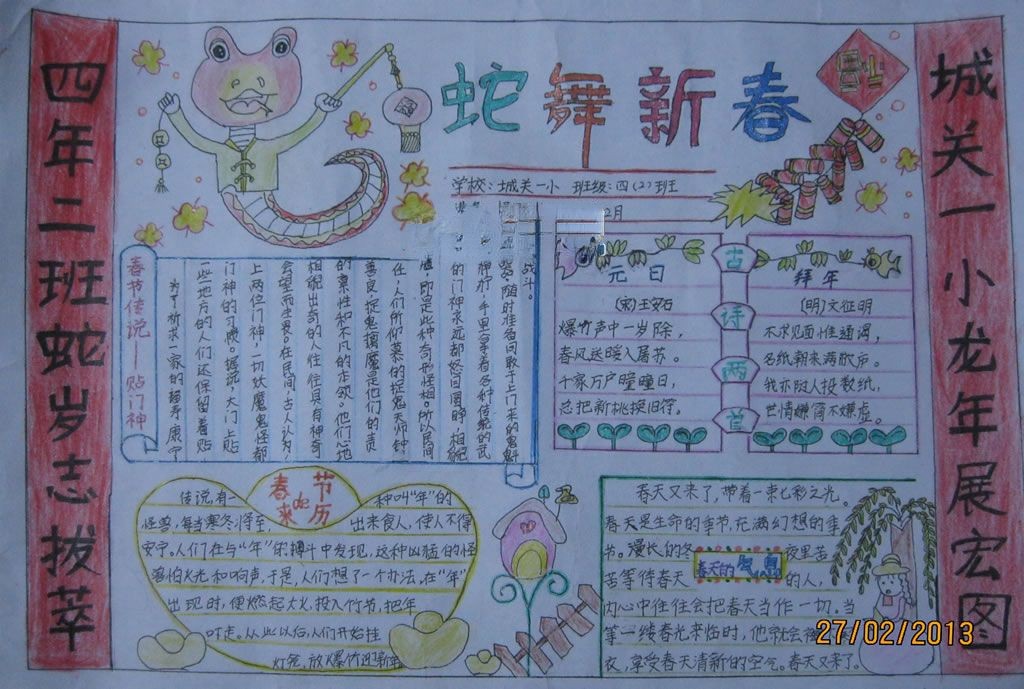 城关一小龙年展宏图
四年二班蛇岁志拔萃
蛇舞新春
学校：城关一小 班级：四（2）班
2月
春节传说——贴门神
为了祈求一家的福寿康宁
一些地方的人们还保留着贴
门神的习惯。据说，大门上贴
上两位门神，一切妖魔鬼怪都
会望而生畏。在民间，古人认为，
相貌出奇的人往往具有神奇
的禀性和不凡的本领。他们心地
善良，捉鬼擒魔是他们的责
任，人们所仰慕的捉鬼天师钟
馗，即是此种奇形怪相。所以民间
的门神永远都怒目圆睁，相貌
手里拿着各种传统的武
随时准备同敢于上门来的鬼魅
战斗。
古诗两首
元日
（宋）王安石
爆竹声中一岁除，
春风送暖入屠苏。
千家万户瞳瞳日，
总把新桃换旧符。
拜年
（明）文征明
不求见面惟通谒，
名纸朝来满敝庐。
我亦随人投数纸，
世情嫌简不嫌虚。
春节的来历
传说，有一种叫“年”的
怪兽，每当寒冬将至，出来食人，使人不得
安宁。人们在与“年”的搏斗中发现，这种凶猛的怪
害怕火光和响声，于是，人们想了一个办法，在“年”
出现时，便燃起大火，投入竹节，把年
吓走。从此以后，人们开始挂
灯笼，放爆竹迎新年
春天的
春天又来了，带着一束七彩之光。
春天是生命的季节，充满幻想的季
节。漫长的冬夜里苦
苦等待春天的人，
内心中往往会把春天当作一切。当
第一缕春光来临时，他就会
衣，享受春天清新的空气。春天又来了。
27/02/2013